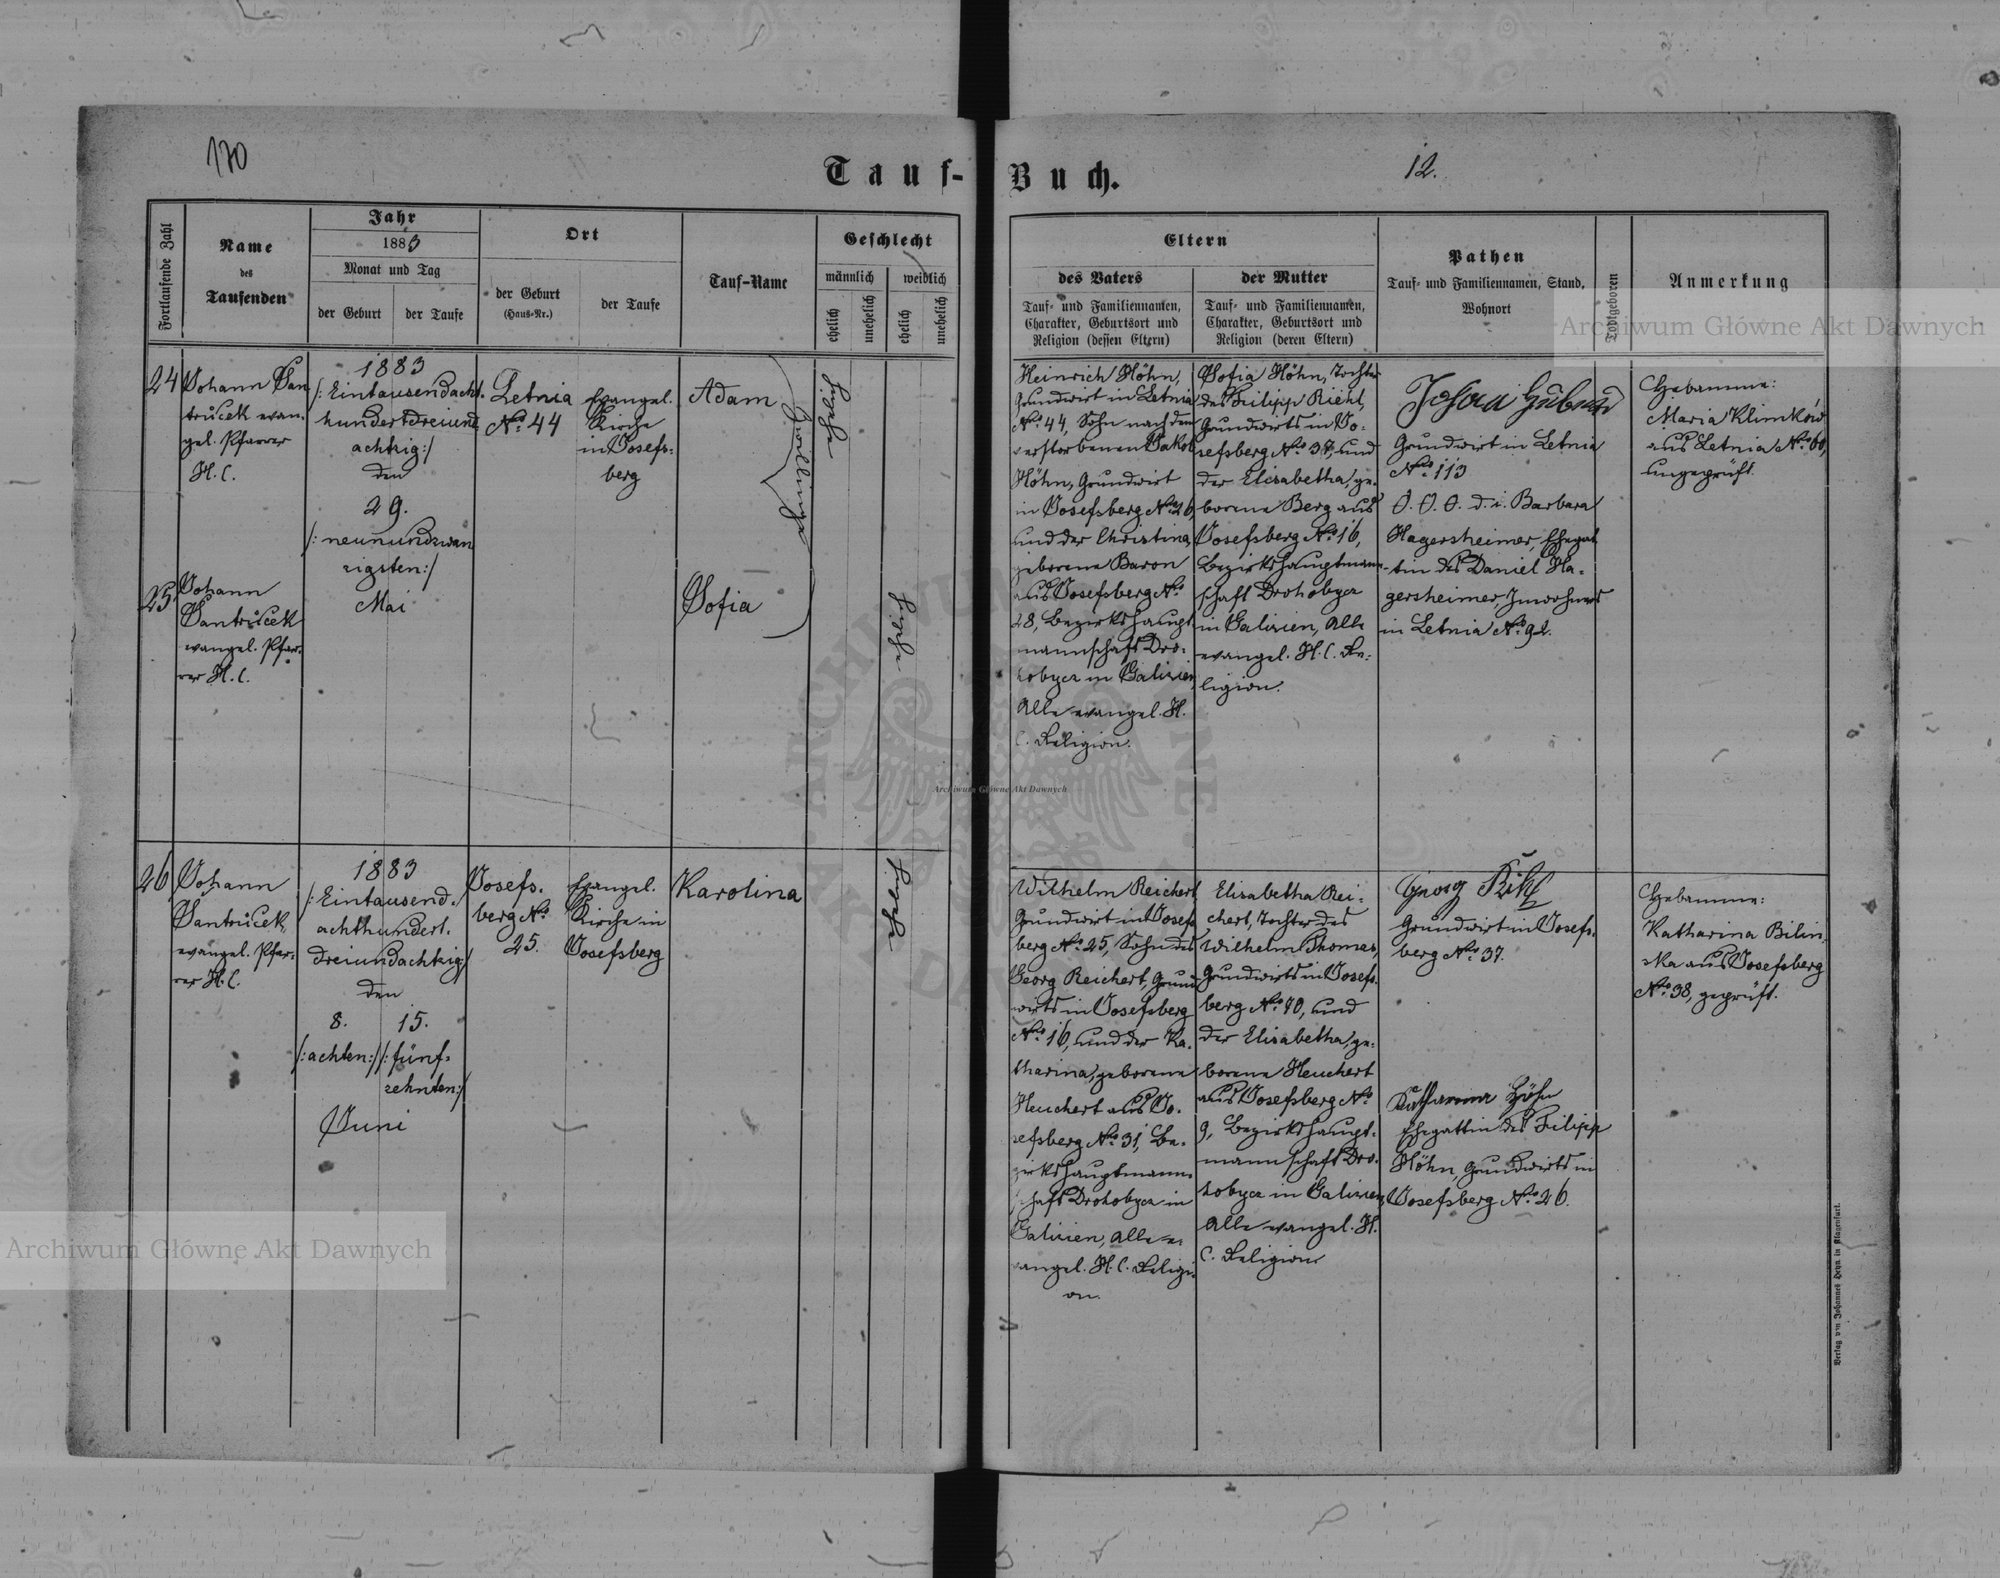 170
Tauf-Buch.
12.
Fortlaufende Zahl
Name
des
Taufenden
Jahr
1883
Monat und Tag
der Geburt
der Taufe
Ort
der Geburt
(Haus-Nr.)
der Taufe
Tauf-Name
Geschlecht
männlich
weiblich
ehelich
unehelich
ehelich
unehelich
Eltern
des Vaters
Tauf- und Familiennamen,
Charakter, Geburtsort und
Religion (dessen Eltern)
der Mutter
Tauf- und Familiennamen,
Charakter, Geburtsort und
Religion (deren Eltern)
Pathen
Tauf- und Familiennamen, Stand,
Wohnort
Todtgeboren
Anmerkung
24
Johann Jan
trůcek evan-
gel. Pfarrer
H.C.
1883
/: Eintausendacht-
hundertdreiund
achtzig:/
den
29.
/: neunundzwan
zigsten:/
Mai
Letnia
No. 44
Evangel.
Kirche
in Josefs-
berg
Adam
Zwillinge
eheliche
Heinrich Höhn,
Grundwirt in Letnia
No. 44, Sohn nach dem
verstorbenen Jakob
Höhn, Grundwirt
in Josefsberg No. 26,
und der Christina,
geborene Baron
aus Josefsberg No.
28, Bezirkshaupt
mannschaft Dro-
hobycz in Galizien
Alle evangel. H.
C. Religion.
Sofia Höhn, Tochter
des Filipp Riehl,
Grundwirts in Jo-
sefsberg No. 37, und
der Elisabetha, ge-
borene Berg aus
Josefsberg No. 16,
Bezirkshauptmann-
schaft Drohobycz
in Galizien, Alle
evangel. H.C. Re-
ligion.
Grundwirt in Letnia
No. 113
O. O. O. d. i. Barbara
Hagersheimer, Ehegat
-tin des Daniel Ha-
gersheimer, Inwohners
in Letnia No. 92.
Hebamme:
Maria Klimków
aus Letnia No. 60,
ungeprüft.
25
Johann
Jantrůcek
evangel. Pfar-
rer H.C.
Sofia
eheliche
26
Johann
Jantrůcek,
evangel. Pfar-
rer H.C.
1883
/: Eintausend-
achthundert-
dreiundachtzig:/
den
8.
15.
/:achten:/
/:fünf-
zehnten:/
Juni
Josefs-
berg No.
25.
Evangel.
Kirche in
Josefsberg
Karolina
eheliche
Wilhelm Reichert,
Grundwirt in Josefs
berg No. 25, Sohn des
Georg Reichert, Grund
wirts in Josefsberg
No. 16, und der Ka-
tharina, geborene
Heuchert aus Jo-
sefsberg No. 31, Be-
zirkshauptmann-
schaft Drohobycz in
Galizien, Alle e-
vangel. H.C. Religi-
on.
Elisabetha Rei-
chert, Tochter des
Wilhelm Thomas,
Grundwirts in Josefs-
berg No. 70, und
der Elisabetha, ge-
borene Heuchert
aus Josefsberg No.
9, Bezirkshaupt-
mannschaft Dro-
hobycz in Galizien,
Alle evangel. H.
C. Religion
Georg
Grundwirt in Josefs-
berg No. 37.
Katharina Höhn
Ehegattin des Filipp
Höhn, Grundwirts in
Josefsberg No. 26.
Hebamme:
Katharina Bilin-
ska aus Josefsberg
No. 38, geprüft.
Verlag von Johannes Heyn in Klagenfurt.
Archiwum Główne Akt Dawnych
Archiwum Główne Akt Dawnych
Archiwum Główne Akt Dawnych